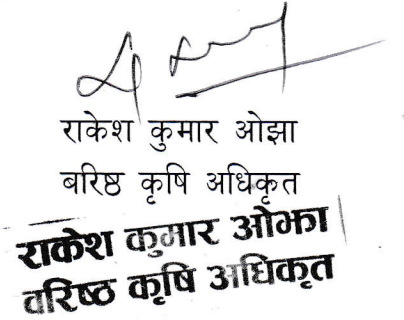 राकेश कुमार ओझा
बरिष्ठ कृषि अधिकृत
राकेश कुमार ओझा
वरिष्ठ कृषि अधिकृत